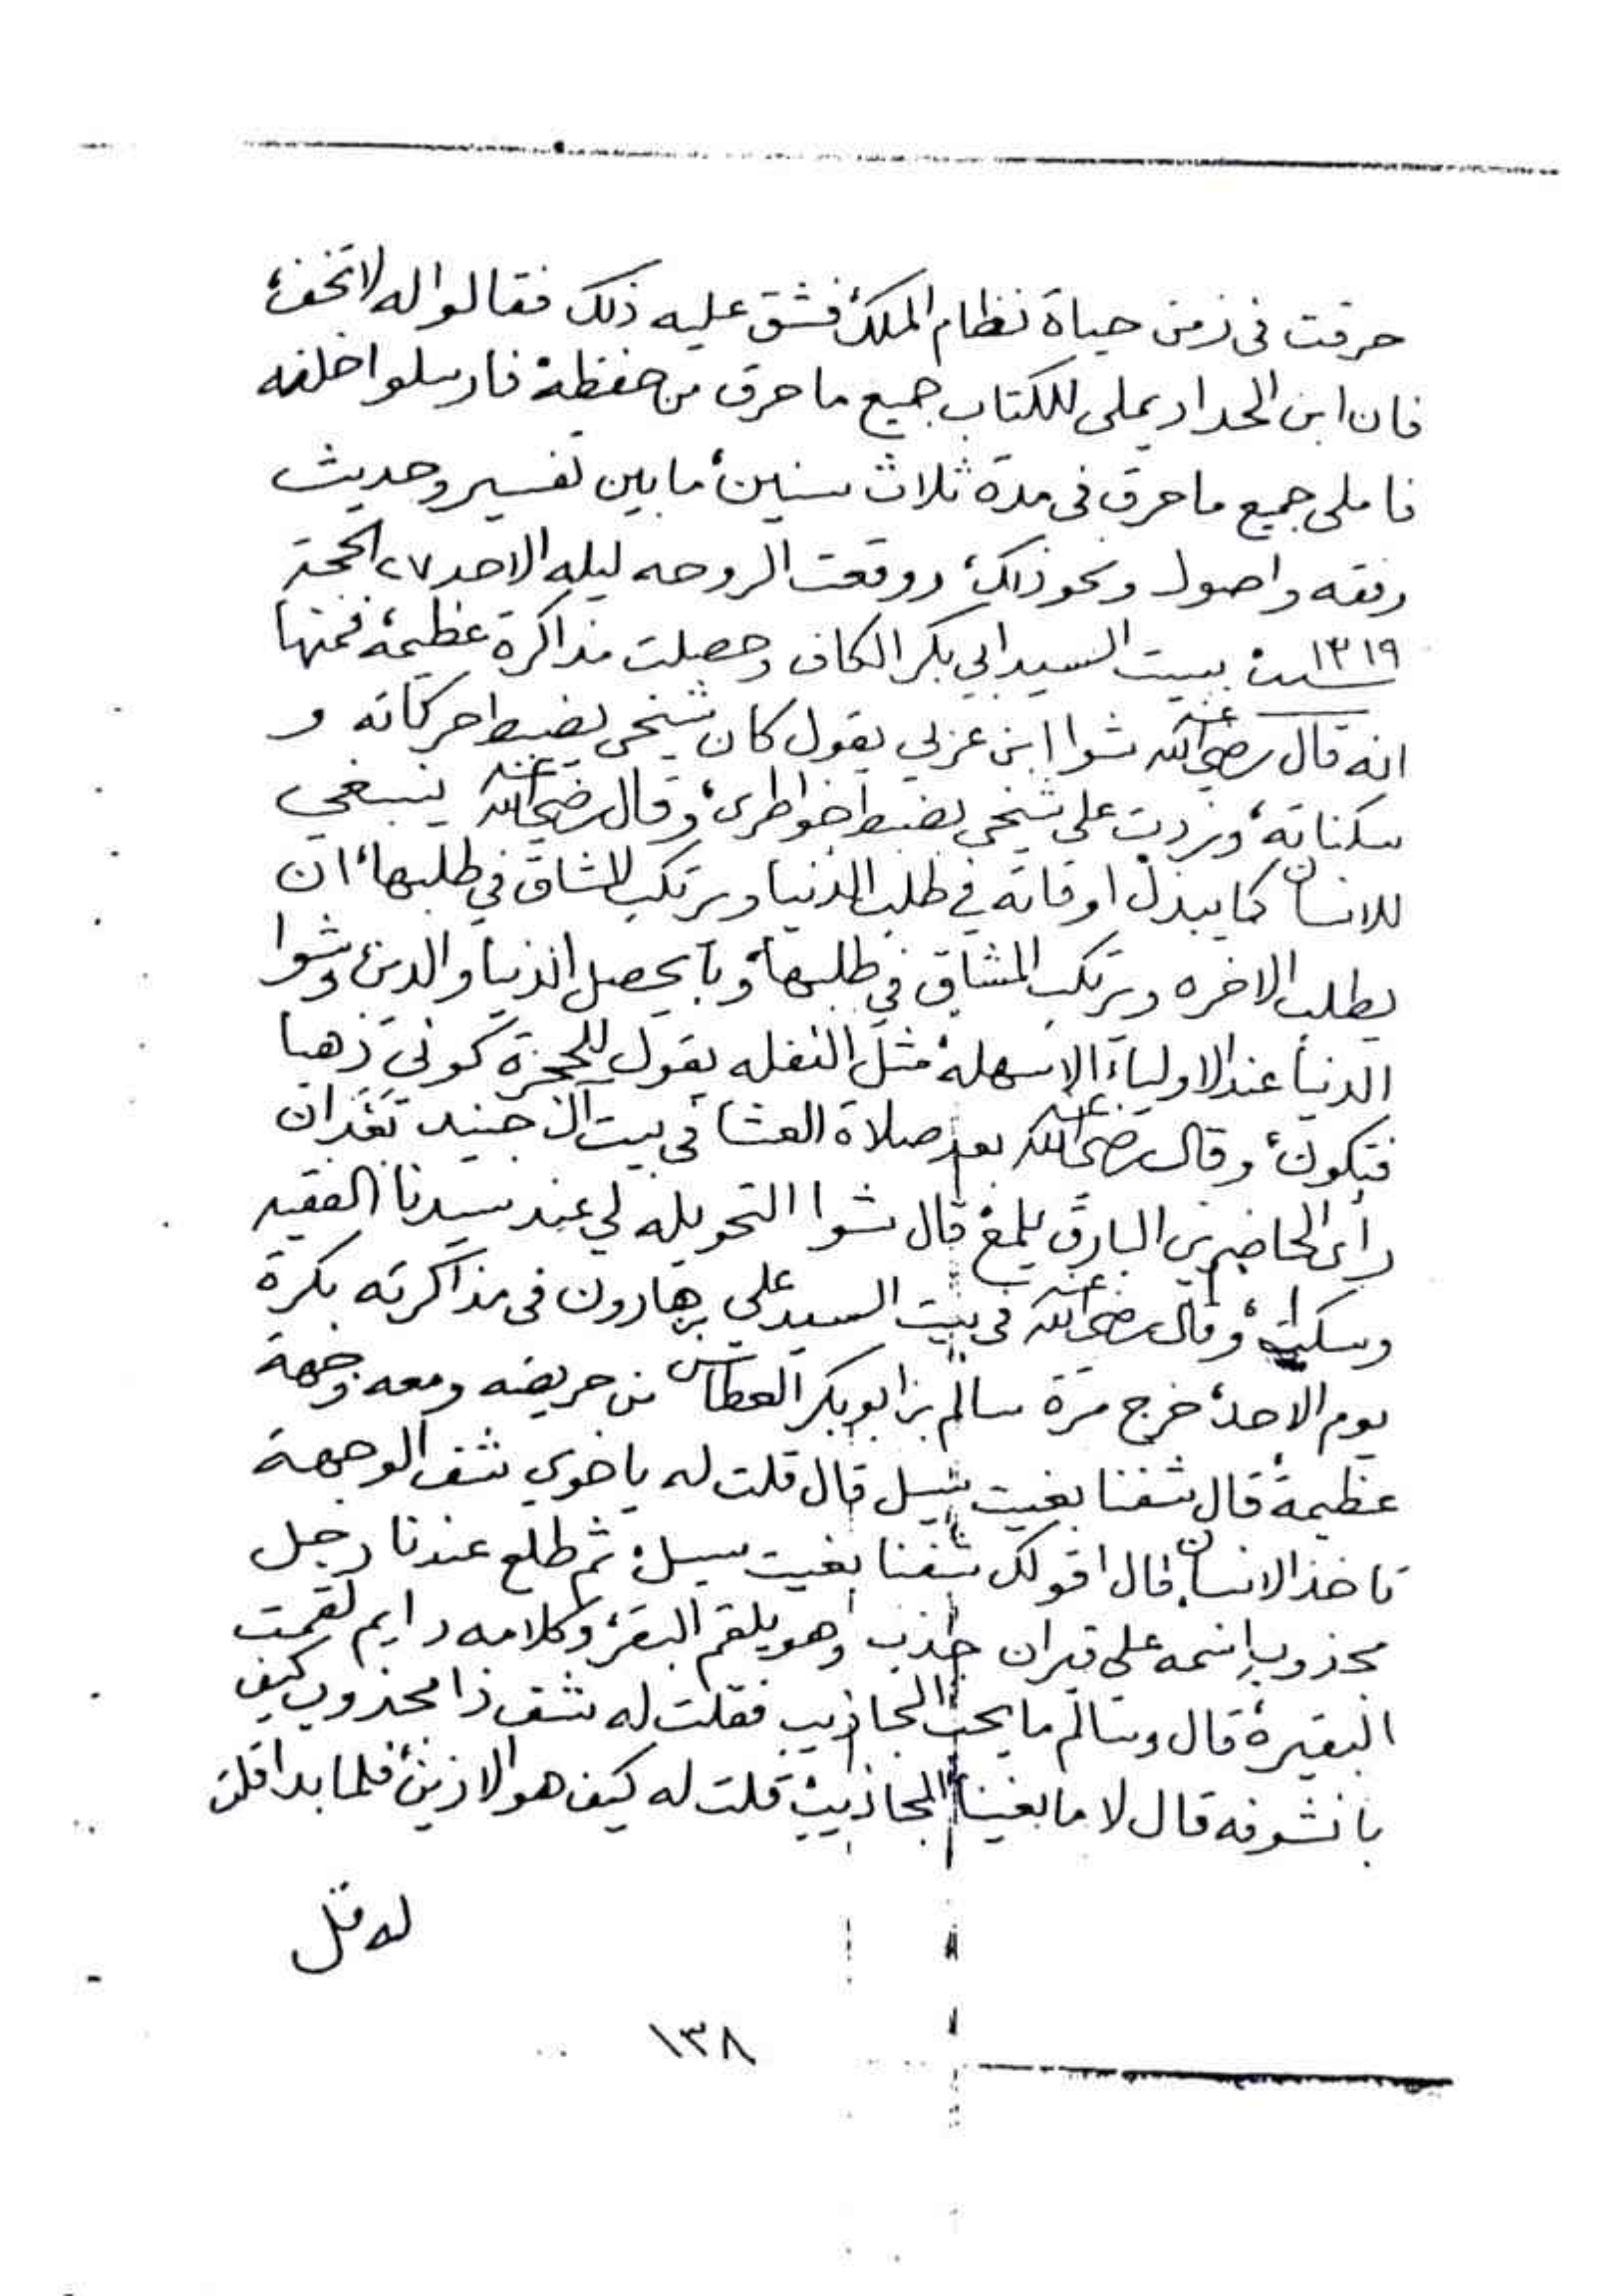 حرقت في زمن حياة نظام الملك، فشق عليه ذلك فقالوا له لا تخف،
فان ابن الحداد يملى للكتاب جميع ما حرق من حفظه، فارسلوا خلفه
فاملى جميع ما حرق في مدة ثلاث سنين، ما بين تفسير وحديث
وفقه واصول ونحو ذلك، ووقعت الروحه ليله الاحد ٢٧ الحجة
سنة ١٣١٩، ببيت السيد ابي بكر الكاف وحصلت مذاكرة عظيمة، فمنها
انه قال رضي الله عنه شوا ابن عربي يقول كان شيخي يضبط حركاته و
سكناته، وزدت على شيخي بضبط خواطري، وقال رضي الله عنه ينبغي
للانسان كما يبذل اوقاته في طلب الدنيا ويرتكب المشاق في طلبها، ان
يطلب الاخره ويرتكب المشاق في طلبها، وبا يحصل الدنيا والدين، وشوا
الدنيا عند الاولياء الا سهله، مثل النفله يقول للحجرة كوني ذهبا
فتكون، وقال رضي الله عنه بعد صلاة العشا في بيت آل جنيد بعد ان
رأى الحاضرين البارق يلمع، قال شوا التحويله لي عند سيدنا الفقيه
وسكت، وقال رضي الله عنه في بيت السيد علي بن هارون في مذاكرته بكرة
يوم الاحد، خرج مرة سالم بن ابوبكر العطاس من حريضه ومعه وجهة
عظيمة، قال شفنا بغيت سيل قال قلت له يا خوي شف الوجهة
تاخذ الانسان قال اقولك شفنا بغيت سيل، ثم طلع عندنا رجل
مجذوب اسمه علي قيران جذب وهو يلقم البقر، وكلامه دايم لقمت
البقيرة، قال وسالم ما يحب المجاذيب فقلت له شف ذا مجذوب كيف
با نشوفه قال لا ما بغينا المجاذيب، قلت له كيف هو الا زين، فلما بدا قلت
له قل
١٣٨